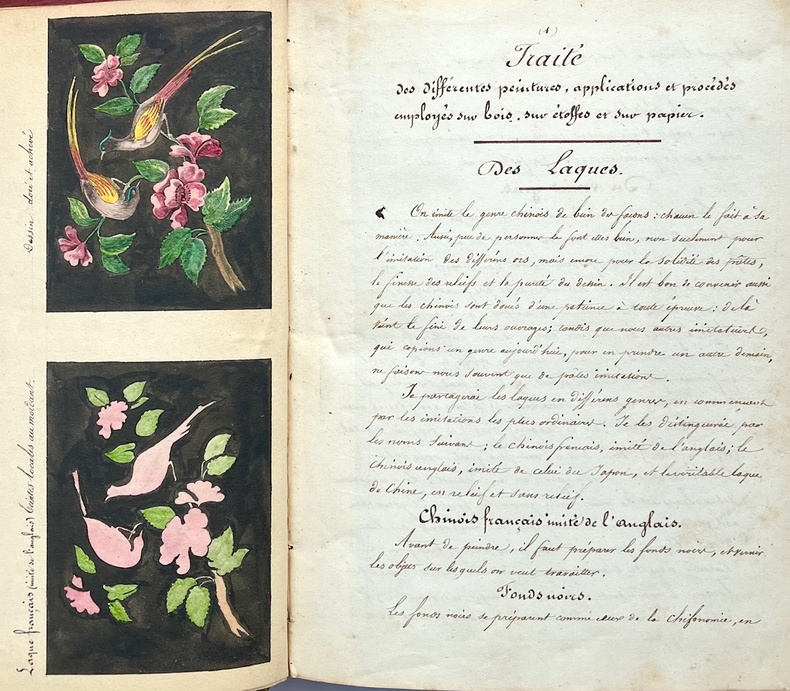 Dessin doré et achevé
Laque français (imité de l'anglais) teintes locales au mordant.
(1)
Traité
des différentes peintures, applications et procédés
employés sur bois, sur étoffes et sur papier.
Des Laques.
On imite le genre chinois de bien des façons : chacun le fait à sa
manière. Aussi, peu de personnes le font elles bien, non seulement pour
l'imitation des différens ors, mais encore pour la solidité des pâtes,
la finesse des reliefs et la pureté du dessin. Il est bon de convenir aussi
que les chinois sont doués d'une patience à toute épreuve ; de là
vient le fini de leurs ouvrages ; tandis que nous autres imitateurs,
qui copions un genre aujourd'hui, pour en prendre un autre demain,
ne faisons nous souvent que de pâles imitations.
Je partagerai les laques en différens genres, en commençant
par les imitations les plus ordinaires. Je les distinguerai par
les noms suivant ; le chinois français, imité de l'anglais ; le
chinois anglais, imité de celui du Japon, et le véritable laque
de Chine, en relief et sans relief.
Chinois français imité de l'anglais.
Avant de peindre, il faut préparer les fonds noirs, et vernir
les objets sur lesquels on veut travailler.
Fonds noirs.
Les fonds noirs se préparent comme ceux de la Chifonomie, en